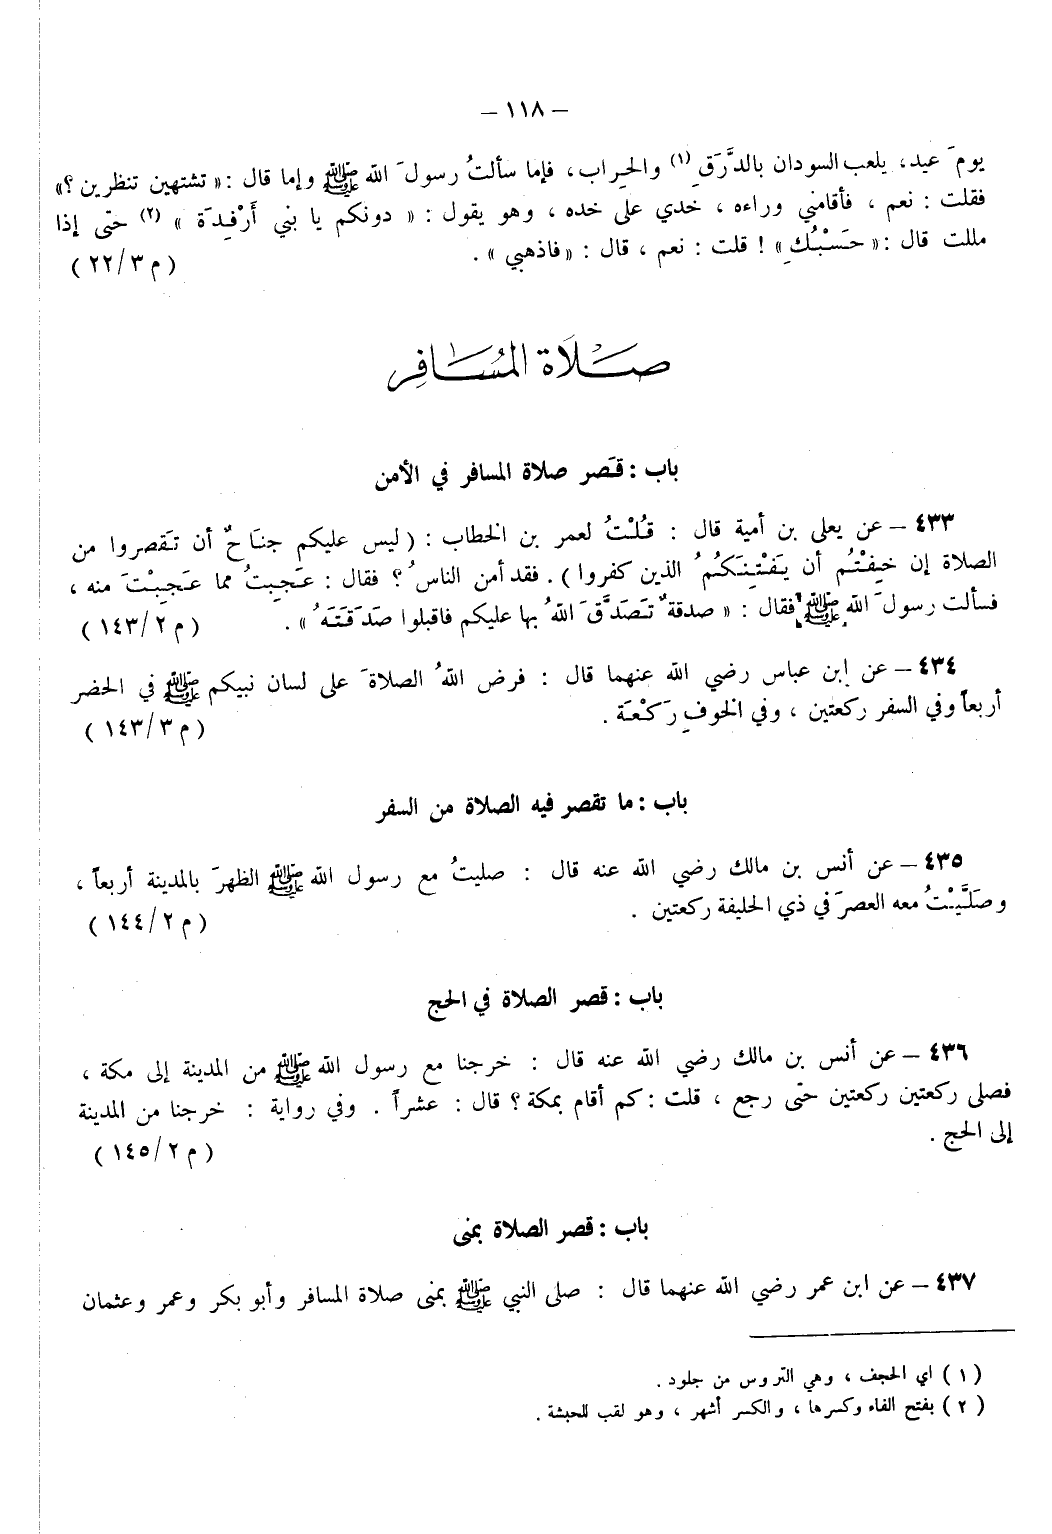 – ١١٨ –
يومَ عيد، يلعب السودان بالدَّرَقِ (١) والحِراب، فإما سألتُ رسولَ الله ﷺ وإما قال : « تشتهين تنظرين ؟ »
فقلت : نعم ، فأقامني وراءه ، خدي على خده ، وهو يقول : « دونكم يا بني أَرْفِدَة » (٢) حتى إذا
مللت قال : « حَسْبُكِ » ! قلت : نعم ، قال : « فاذهبي » . ( م ٢٢/٣ )
صَلَاة المُسَافِر
باب : قَصر صلاة المسافر في الأمن
٤٣٣ – عن يعلى بن أمية قال : قُلْتُ لعمر بن الخطاب : ( ليس عليكم جنَاحٌ أن تَقصروا من
الصلاة إن خِفْتُم أن يَفْتِنَكُمُ الذين كفروا ) . فقد أمن الناسُ ؟ فقال : عَجِبتُ مما عَجِبْتَ منه ،
فسألت رسولَ الله ﷺ فقال : « صدقةٌ تَصَدَّقَ اللهُ بها عليكم فاقبلوا صَدَقَتَهُ » . ( م ١٤٣/٢ )
٤٣٤ – عن إبن عباس رضي الله عنهما قال : فرض اللهُ الصلاةَ على لسان نبيكم ﷺ في الحضر
أربعاً وفي السفر ركعتين ، وفي الخوفِ رَكْعَة . ( م ١٤٣/٣ )
باب : ما تقصر فيه الصلاة من السفر
٤٣٥ – عن أنس بن مالك رضي الله عنه قال : صليتُ مع رسول الله ﷺ الظهرَ بالمدينة أربعاً ،
وصَلَّيْتُ معه العصرَ في ذي الحليفة ركعتين . ( م ١٤٤/٢ )
باب : قصر الصلاة في الحج
٤٣٦ – عن أنس بن مالك رضي الله عنه قال : خرجنا مع رسول الله ﷺ من المدينة إلى مكة ،
فصلى ركعتين ركعتين حتى رجع ، قلت : كم أقام بمكة ؟ قال : عشراً . وفي رواية : خرجنا من المدينة
إلى الحج . ( م ١٤٥/٢ )
باب : قصر الصلاة بمنى
٤٣٧ – عن ابن عمر رضي الله عنهما قال : صلى النبي ﷺ بمنى صلاة المسافر وأبو بكر وعمر وعثمان
( ١ ) اي الحجف ، وهي التروس من جلود .
( ٢ ) بفتح الفاء وكسرها ، والكسر أشهر ، وهو لقب للحبشة .